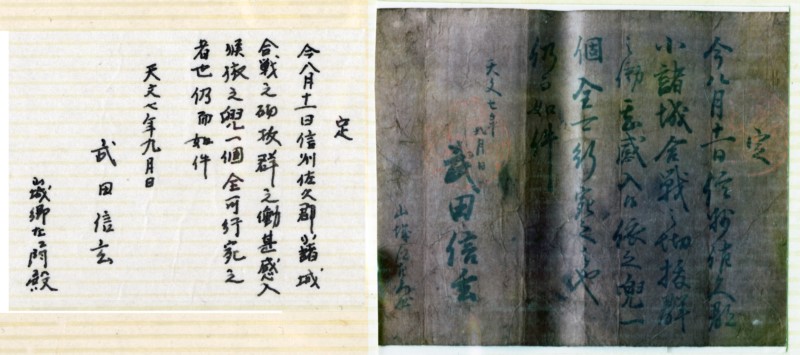 定
今八月十一日信州佐久郡小諸城
合戦之砌抜群之働甚感入
候依之兜一個全可行宛之
者也仍而如件
天文七年九月日
武田信玄
山城郷左エ門殿
定
今八月十一日信州佐久郡
小諸城合戦之砌抜群
之働甚感入候依之兜一
個全可行宛之者也
仍而如件
天文七年
九月日
武田信玄
山城